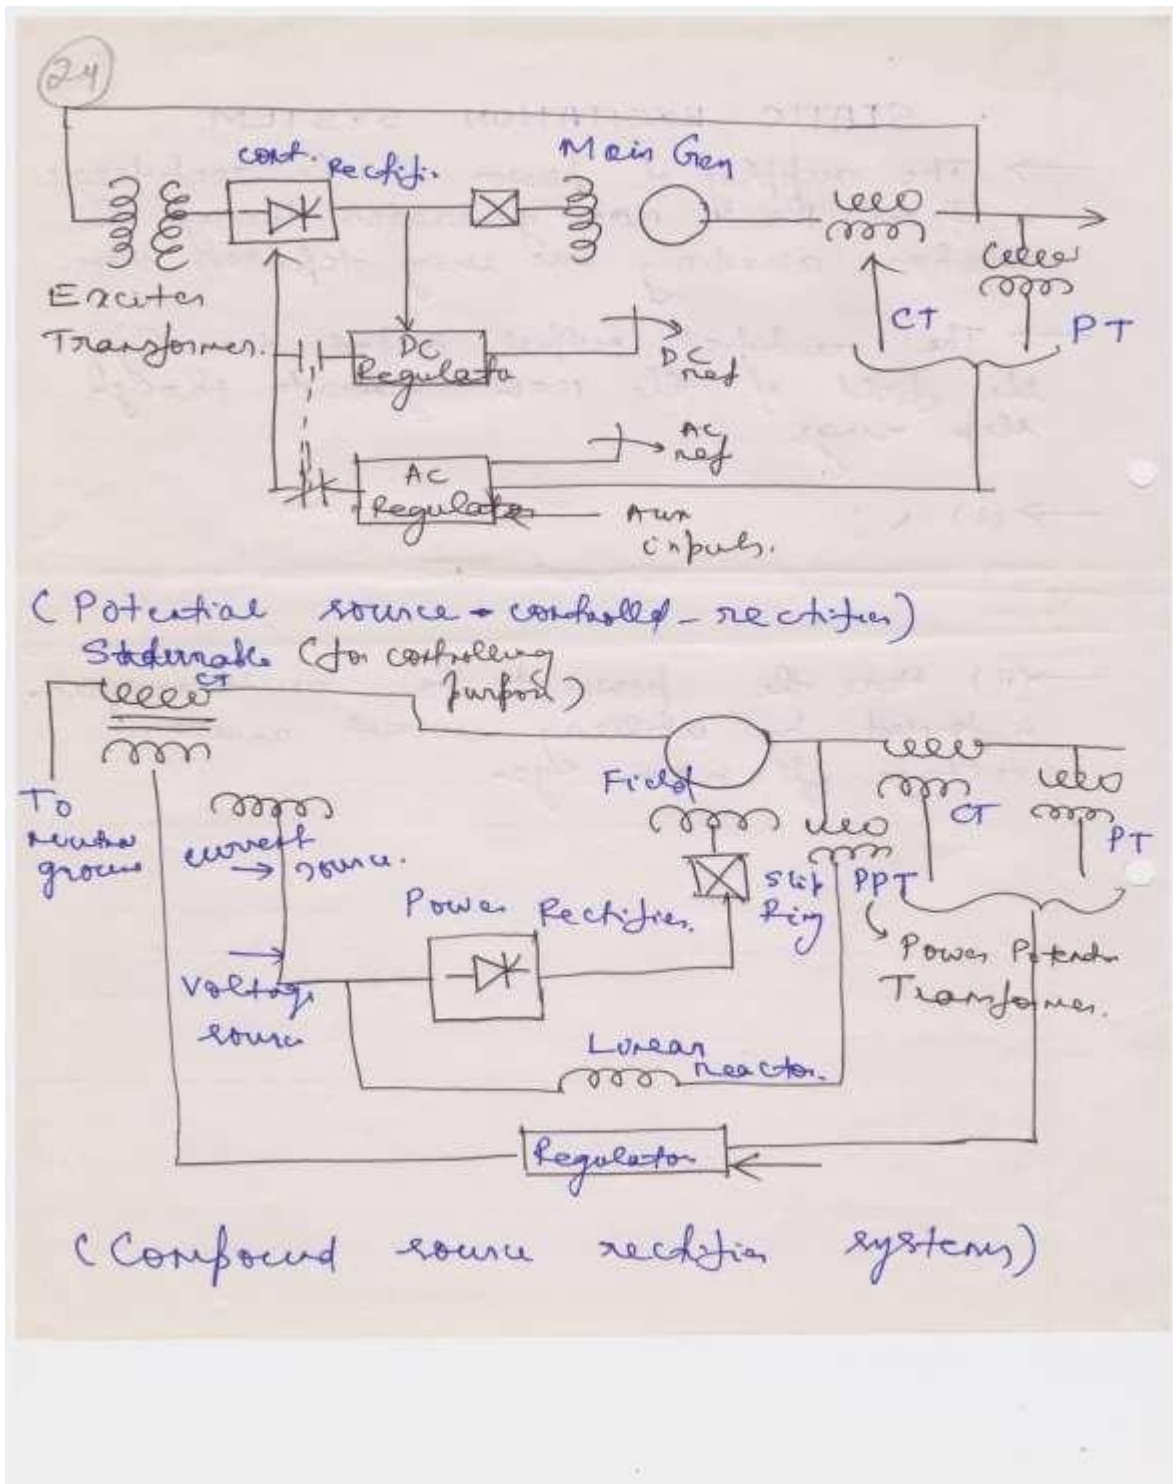 24
cont. Rectifi.
Main Gen
Exciter
Transformer.
DC
Regulato
DC
ref
CT
PT
AC
Regulator
AC
ref
Aux
inputs.
(Potential source - controlled - rectifier)
(for controlling
purpose)
CT
To
neutra
groun
current
source.
Voltage
source
Power Rectifier.
Field
Slip
Ring
PPT
CT
PT
Power Potential
Transformer.
Linear
reactor.
Regulator
(Compound source rectifier systems)